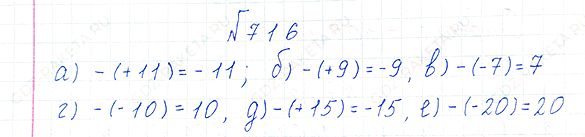 №716
а) -(+11)= -11; б) -(+9)=-9, в) -(-7)=7
г) -(-10)=10, д) -(+15)=-15, е) -(-20)=20